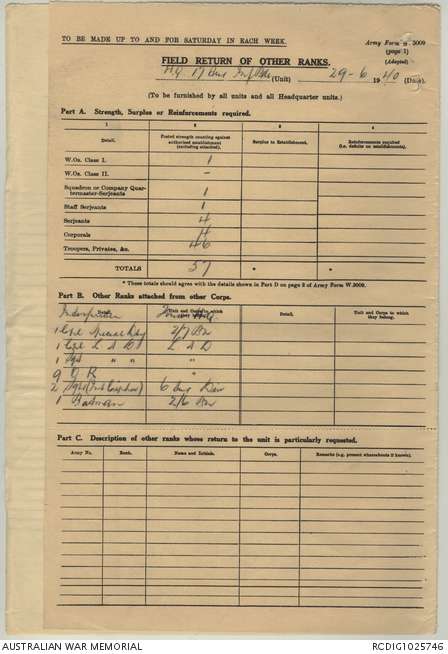 TO BE MADE UP TO AND FOR SATURDAY IN EACH WEEK.
Army Form B 3009
(page 1)
(Adapted)
FIELD RETURN OF OTHER RANKS.
H.Q. 17 Aus Inf Bde (Unit) 29-6 1940 (Date)
(To be furnished by all units and all Headquarter units.)
Part A. Strength, Surplus or Reinforcements required.
1 2 3 4
Detail. Posted strength counting against authorized establishment (excluding attached). Surplus to Establishment. Reinforcements required (i.e. deficits on establishments).
W.Os. Class I. 1
W.Os. Class II. -
Squadron or Company Quartermaster-Serjeants 1
Staff Serjeants 1
Serjeants 4
Corporals 4
Troopers, Privates, &c. 46
TOTALS 57 * *
* These totals should agree with the details shown in Part D on page 2 of Army Form W.3009.
Part B. Other Ranks attached from other Corps.
Detail. Unit and Corps to which they belong. Detail. Unit and Corps to which they belong.
1 Cpl 2/7 Bn
1 Cpl L A D L A D
1 " " "
9 O R "
2 6 Aus Div
1 Batman 2/6 Bn
Part C. Description of other ranks whose return to the unit is particularly requested.
Army No. Rank. Name and Initials. Corps. Remarks (e.g. present whereabouts if known).
AUSTRALIAN WAR MEMORIAL
RCDIG1025746